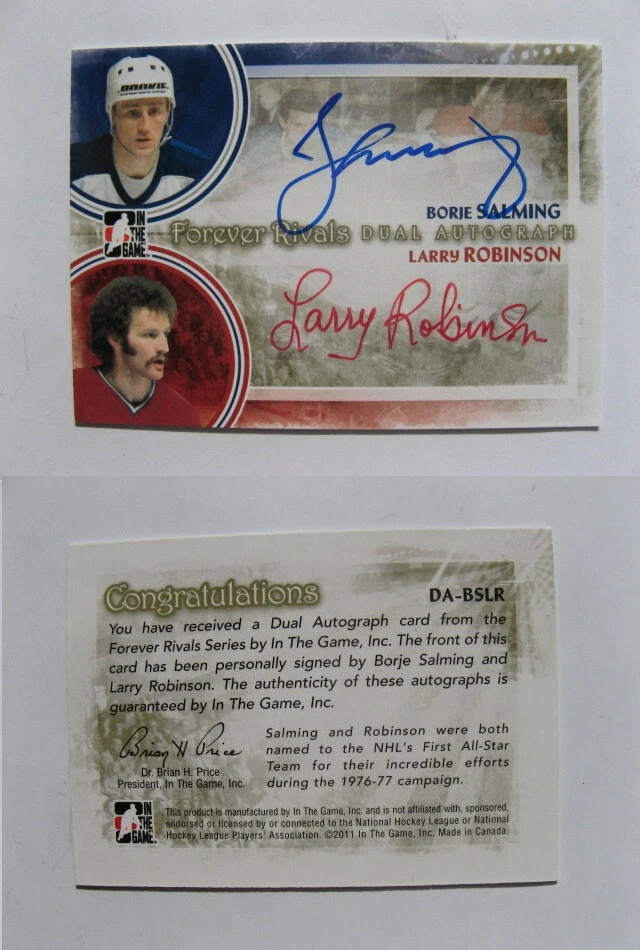 ROOKIE
IN
THE
GAME
BORJE SALMING
Forever Rivals DUAL AUTOGRAPH
LARRY ROBINSON
Larry Robinson
Congratulations
DA-BSLR
You have received a Dual Autograph card from the
Forever Rivals Series by In The Game, Inc. The front of this
card has been personally signed by Borje Salming and
Larry Robinson. The authenticity of these autographs is
guaranteed by In The Game, Inc.
Brian H Price
Dr. Brian H. Price
President, In The Game, Inc.
Salming and Robinson were both
named to the NHL's First All-Star
Team for their incredible efforts
during the 1976-77 campaign.
IN
THE
GAME
This product is manufactured by In The Game, Inc. and is not affiliated with, sponsored,
endorsed or licensed by or connected to the National Hockey League or National
Hockey League Players' Association. ©2011 In The Game, Inc. Made in Canada.